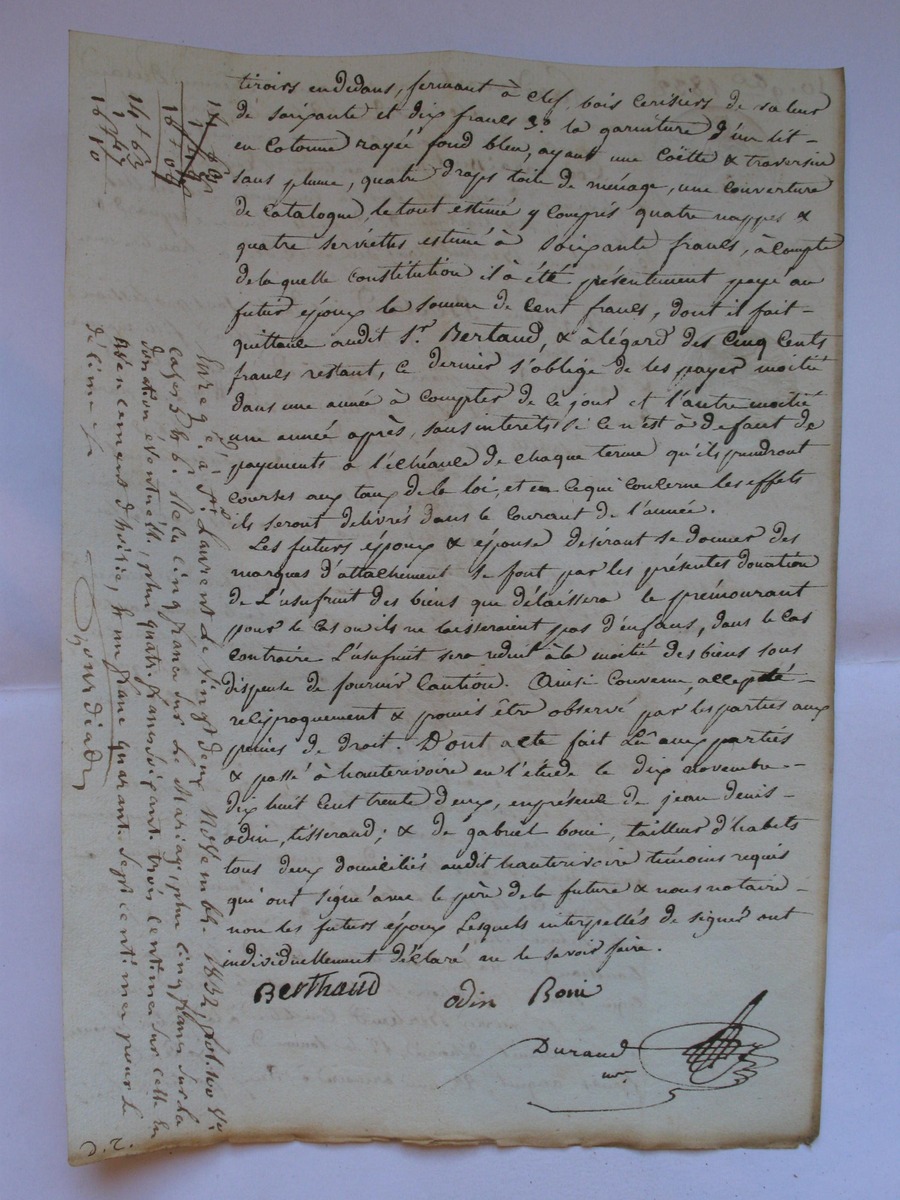 tiroirs en dedans, fermant à clef, bois cerisiers de valeur
de soixante et dix francs 3º la garniture d'un lit -
en Cotonne rayée fond bleu, ayant une Coëtte & traversin
sans plume, quatre draps toile de ménage, une couverture
de Catalogne, le tout estimé y compris quatre nappes &
quatre serviettes estimé à soixante francs, à compte
de laquelle constitution il à été présentement payé au
futur époux la somme de cent francs, dont il fait -
quittance audit Sr. Bertaud, & à légard des Cinq Cents
francs restant, ce dernier s'oblige de les payer moitié
dans une année à compter de ce jour et l'autre moitié
une année après, sans interêts si ce n'est à defaut de
payements à l'échéance de chaque terme qu'ils prendront
courses aux taux de la loi, et en ce qui concerne les effets
ils seront delivrés dans le Courant de l'année.
Les futurs époux & épouse désirant se donner des
marques d'attachement se font par les présentes donation
de L'usufruit des biens que délaissera le prémourant
pour le cas ou ils ne laisseraient pas d'enfans, dans le cas
contraire L'usufruit sera reduit à la moitié des biens sous
dispense de fournir Caution. Ainsi Convenu, accepté -
reciproquement & promis être observé par les parties aux
peines de droit. Dont acte fait Lû aux parties
& passé à hauterivoire en l'étude le dix novembre -
dix huit cent trente deux, en présence de jean denis -
odin, tisserand; & de gabriel boni, tailleur d'habits
tous deux domiciliés audit hauterivoire témoins requis
qui ont signé avec le père de la future & nous notaire -
non les futurs époux Lesquels interpellés de signer ont
individuellement déclaré ne le savoir faire.
Berthaud odin Boni
Durand
nre
Enreg. é à St. Laurent le vingt deux Novembre 1832, fol.
cases reçu cinq francs sur le Mariage, plus cinq francs sur la
donation éventuelle, plus quatre francs soixante trois centimes sur celle en
avancement d'hoirie, & un franc quarante sept centimes pour le
décime
14 63
1 47
16 10